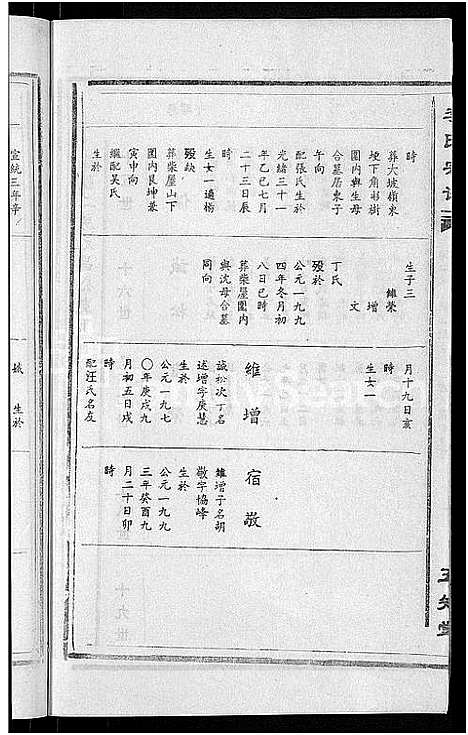 時
葬大坡嶺東
埂下角杉樹
園內與生母
合墓居東子
午向
配張氏生於
光緒三十一
年乙巳七月
二十三日辰
時
生女一適楊
殁缺
葬柴屋山下
園內艮坤兼
寅申向
繼配吳氏
生於
生子三
維榮
增
文
丁氏
殁於
公元一九九
四年冬月初
八日巳時
葬柴屋園內
與沈母合墓
同向
月十九日亥
時
生女一
維增
誠松次丁名
述增字庚慧
生於
公元一九七
〇年庚戌九
月初五日戌
時
配汪氏名友
宿敬
維增子名胡
敬字協峰
生於
公元一九九
三年癸酉九
月二十日卯
時
宣統三年辛
生於